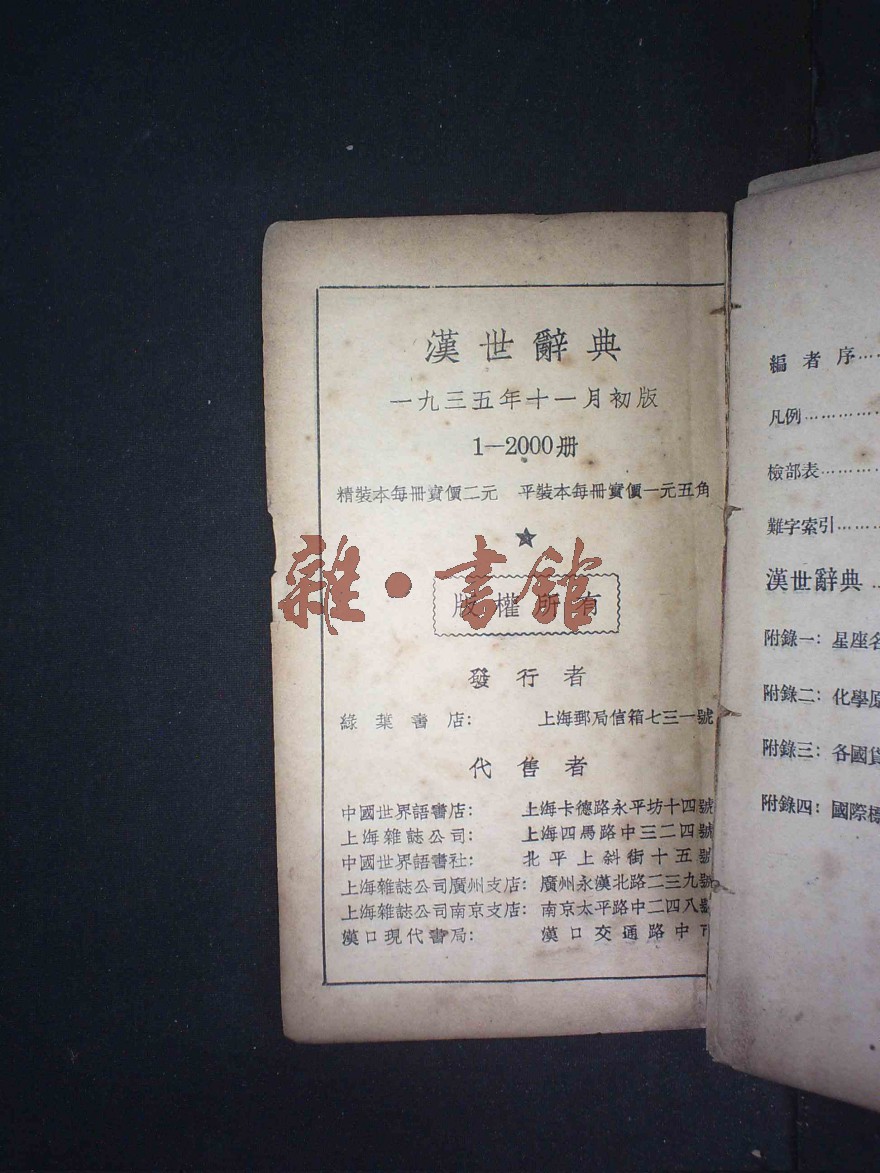 漢世辭典
一九三五年十一月初版
1—2000册
精裝本每冊實價二元 平裝本每冊實價一元五角
雜·書館
版權所有
發行者
綠葉書店: 上海郵局信箱七三一號
代售者
中國世界語書店: 上海卡德路永平坊十四號
上海雜誌公司: 上海四馬路中三二四號
中國世界語書社: 北平上斜街十五號
上海雜誌公司廣州支店: 廣州永漢北路二三九號
上海雜誌公司南京支店: 南京太平路中二四八號
漢口現代書局: 漢口交通路中
編者序……
凡例……………
檢部表…………
難字索引………
漢世辭典…
附錄一: 星座名
附錄二: 化學原
附錄三: 各國貨
附錄四: 國際標